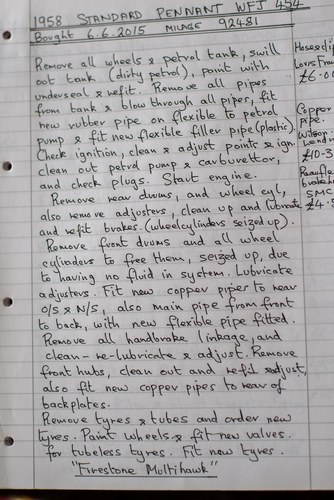 1958 STANDARD PENNANT WFJ 454
Bought 6.6.2015 MILAGE 92481
Remove all wheels & petrol tank, swill
out tank (dirty petrol), paint with
underseal & refit. Remove all pipes
from tank & blow through all pipes, fit
new rubber pipe on flexible to petrol
pump & fit new flexible filler pipe (plastic)
Check ignition, clean & adjust points & ign.
clean out petrol pump & carburettor,
and check plugs. Start engine.
Remove rear drums, and wheel cyl,
also remove adjusters, clean up and lubricate
and refit brakes. (wheelcylinders seized up).
Remove front drums and all wheel
cylinders to free them, seized up, due
to having no fluid in system. Lubricate
adjusters. Fit new copper pipes to rear
O/S & N/S, also main pipe from front
to back, with new flexible pipe fitted.
Remove all handbrake linkage, and
clean - re-lubricate & adjust. Remove
front hubs, clean out and refit & adjust,
also fit new copper pipes to rear of
backplates.
Remove tyres & tubes and order new
tyres. Paint wheels & fit new valves.
for tubeless tyres. Fit new tyres.
"Firestone Multihawk"
Hose & cli
£6.0
Copper
pipe.
Wilson
£10-3
brake
SMC
£4.